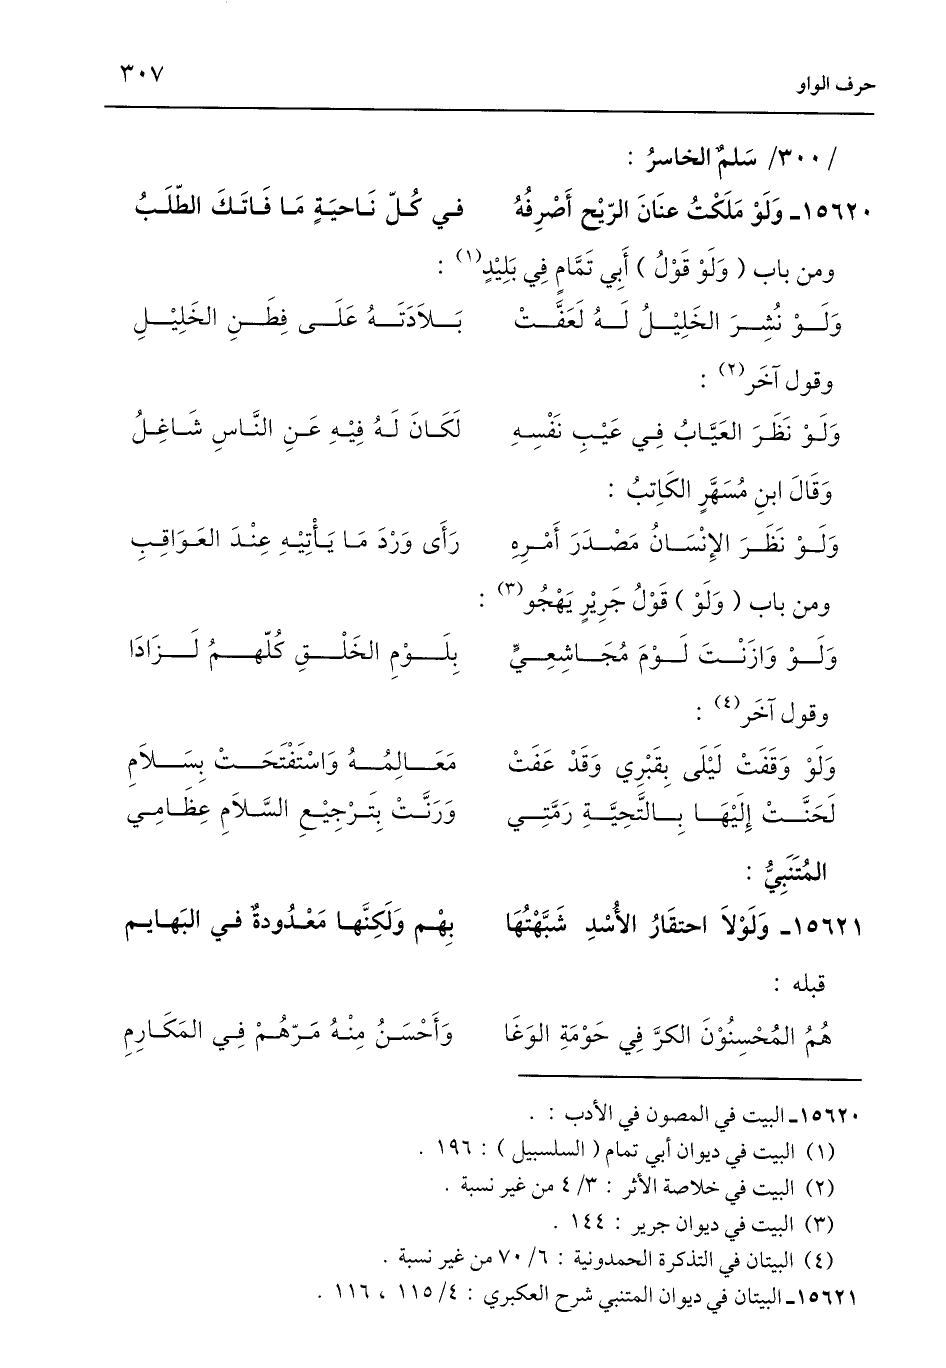 حرف الواو ٣٠٧
/٣٠٠/ سَلمٌ الخاسرُ :
١٥٦٢٠ـ وَلَوْ مَلَكْتُ عنَانَ الرّيْحِ أَصْرِفُهُ في كُلّ نَـاحيَـةٍ مَـا فَـاتَـكَ الطّلَبُ
ومن باب ( وَلَوْ قَوْلُ ) أَبي تَمَّامٍ فِي بَلِيْدٍ(١) :
وَلَـوْ نُشِـرَ الخَلِيْـلُ لَـهُ لَعَفَّـتْ بَـلاَدَتَـهُ عَلَـى فِطَـنِ الخَلِيْـلِ
وقول آخَر(٢) :
وَلَـوْ نَظَرَ العَيَّابُ فِـي عَيْـبِ نَفْسِـهِ لَكَـانَ لَـهُ فِيْـهِ عَـنِ النَّاسِ شَـاغِـلُ
وَقَالَ ابنِ مُسَهَّرٍ الكَاتِبُ :
وَلَـوْ نَظَـرَ الإِنْسَـانُ مَصْـدَرَ أَمْـرِهِ رَأَى وَرْدَ مَـا يَـأْتِيْـهِ عِنْـدَ العَـوَاقِـبِ
ومن باب ( وَلَوْ ) قَوْلُ جَرِيْرٍ يَهْجُو(٣) :
وَلَـوْ وَازَنْـتَ لَـوْمَ مُجَـاشِعِـيٍّ بِلَـوْمِ الخَلْـقِ كُلّهِـمُ لَـزَادَا
وقول آخَر(٤) :
وَلَوْ وَقَفَتْ لَيْلَى بِقَبْرِي وَقَدْ عَفَتْ مَعَـالِمُـهُ وَاسْتَفْتَحَـتْ بِسَـلاَمِ
لَحَنَّـتْ إِلَيْهَـا بِـالتَّحِيَّـةِ رَمَّتِـي وَرَنَّـتْ بِتَـرْجِيْـعِ السَّـلاَمِ عِظَـامِـي
المُتَنَبِيُّ :
١٥٦٢١ـ وَلَوْلاَ احتقَارُ الأُسْدِ شَبَّهْتُهَا بِهْـم وَلَكِنَّهـا مَعْـدُودةٌ فـي البَهـايـم
قبله :
هُمُ المُحْسِنُوْنَ الكَرَّ فِي حَوْمَةِ الوَغَا وَأَحْسَـنُ مِنْـهُ مَـرّهُـمْ فِـي المَكَـارِمِ
١٥٦٢٠ـ البيت في المصون في الأدب : .
(١) البيت في ديوان أبي تمام ( السلسبيل ) : ١٩٦ .
(٢) البيت في خلاصة الأثر : ٣/ ٤ من غير نسبة .
(٣) البيت في ديوان جرير : ١٤٤ .
(٤) البيتان في التذكرة الحمدونية : ٦/ ٧٠ من غير نسبة .
١٥٦٢١ـ البيتان في ديوان المتنبي شرح العكبري : ٤/ ١١٥ ، ١١٦ .